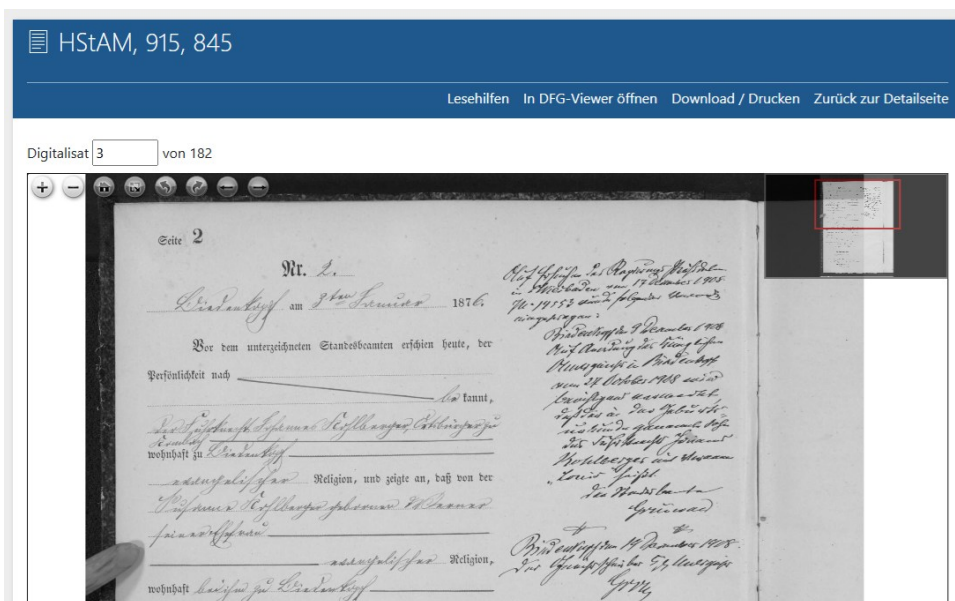 HStAM, 915, 845
Lesehilfen In DFG-Viewer öffnen Download / Drucken Zurück zur Detailseite
Digitalisat 3 von 182
Seite 2
Nr. 2.
Biedenkopf am 3ten Januar 1876.
Vor dem unterzeichneten Standesbeamten erschien heute, der
Persönlichkeit nach
bekannt,
der Fuhrknecht Johannes Kohlberger, Ortsbürger zu
wohnhaft zu Biedenkopf
evangelischer Religion, und zeigte an, daß von der
Susanna Kohlberger geborenen Werner
seiner Ehefrau
evangelischer Religion,
wohnhaft bei ihm zu Biedenkopf
Auf Ersuchen des Regierungs Präsidenten
in Wiesbaden vom 17 1908
wird folgender Vermerk
eingetragen:
Biedenkopf den 9 Dezember 1908
Auf Anordnung des Königlichen
Amtsgerichts in Biedenkopf
vom 27 Oktober 1908 wird
berichtigend vermerkt
daß der in der Geburts-
urkunde genannte Sohn
des Fuhrknechts Johannes
Kohlberger mit Vornamen
"Louis" heißt.
Der Standesbeamte
Grünewald
Biedenkopf den 19 Dezember 1908.
Der Gerichtsschreiber Amtsgerichts